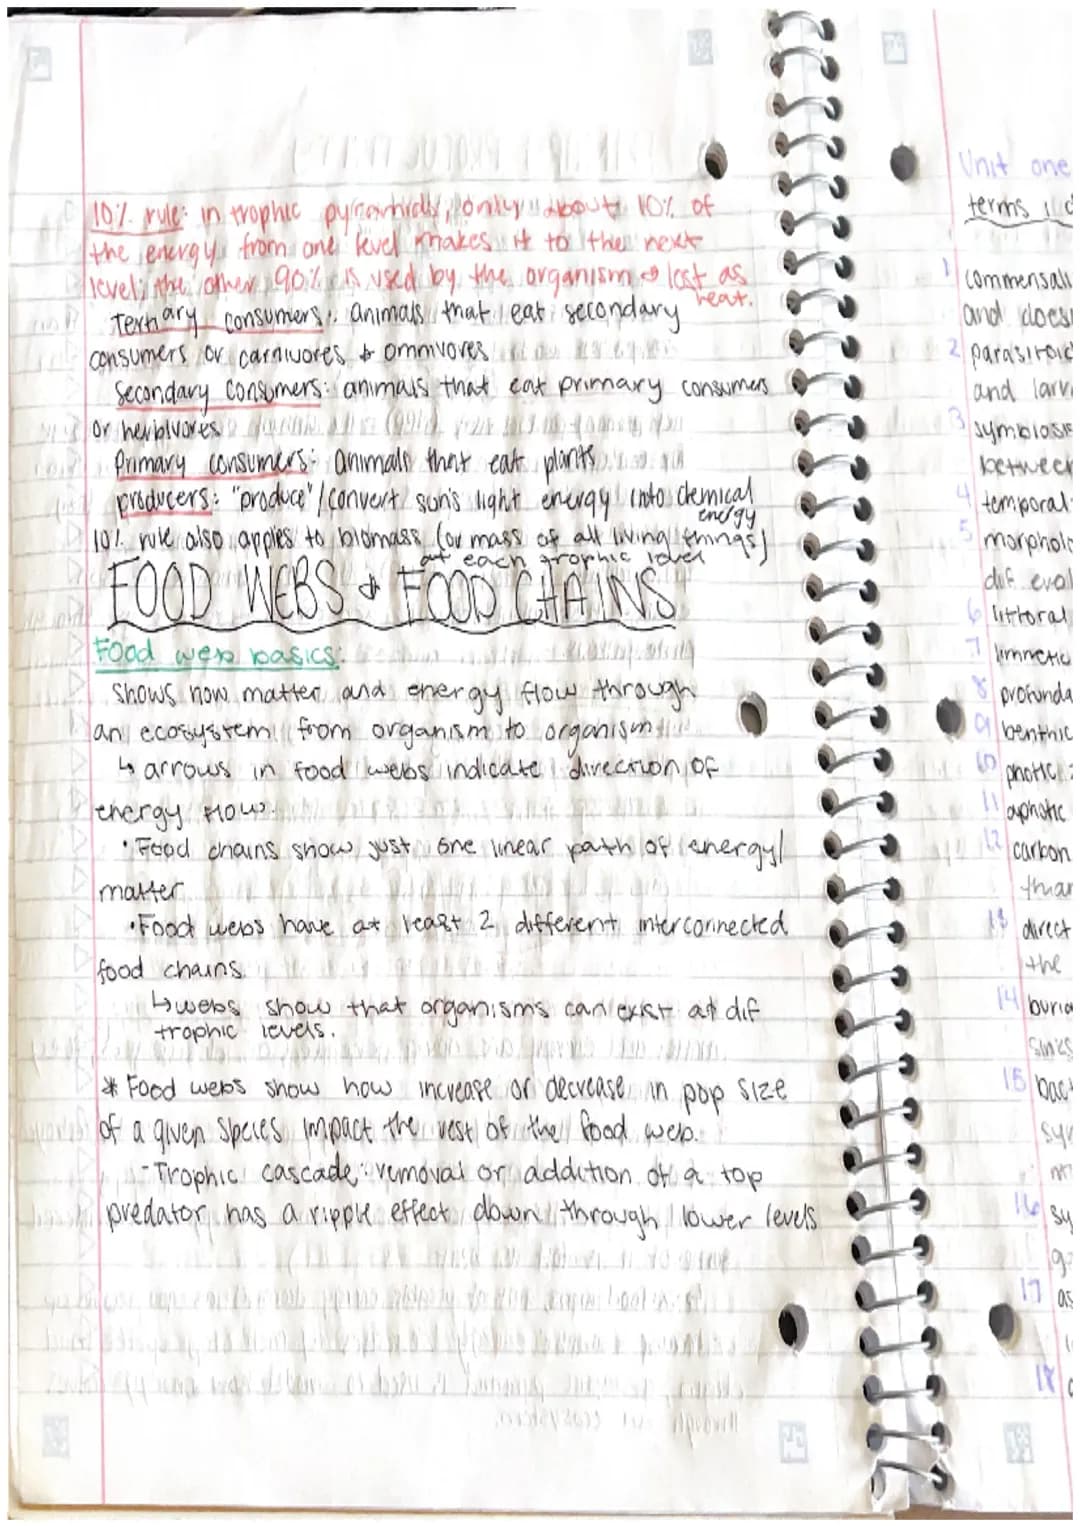 10% rule: in trophic pyramids, only about 10% of
the energy from one level makes it to the next
level; the other 90% is used by the organism & lost as
heat.
Tertiary consumers: animals that eat secondary
consumers or carnivores & omnivores
Secondary consumers: animals that eat primary consumers
or herbivores
Primary consumers: animals that eat plants
producers: "produce"/convert sun's light energy into chemical
energy
10% rule also applies to biomass (or mass of all living things)
at each trophic level
FOOD WEBS & FOOD CHAINS
Food web basics:
shows how matter and energy flow through
an ecosystem from organism to organism
↳ arrows in food webs indicate direction of
energy flow.
• Food chains show just one linear path of energy/
matter
• Food webs have at least 2 different interconnected
food chains
↳ webs show that organisms can exist at dif
trophic levels.
* Food webs show how increase or decrease in pop size
of a given species impact the rest of the food web.
- Trophic cascade: removal or addition of a top
predator has a ripple effect down through lower levels
Unit one
terms
1 commensali
and does
2 parasitoid
and larv
3 symbiosis
between
4 temporal
5 morpholo
dif. evol
6 littoral
7 limnetic
8 profunda
9 benthic
10 photic
11 aphotic
12 carbon
than
13 direct
the
14 buria
sinks
15 bact
sy
16 sy
17 as
18